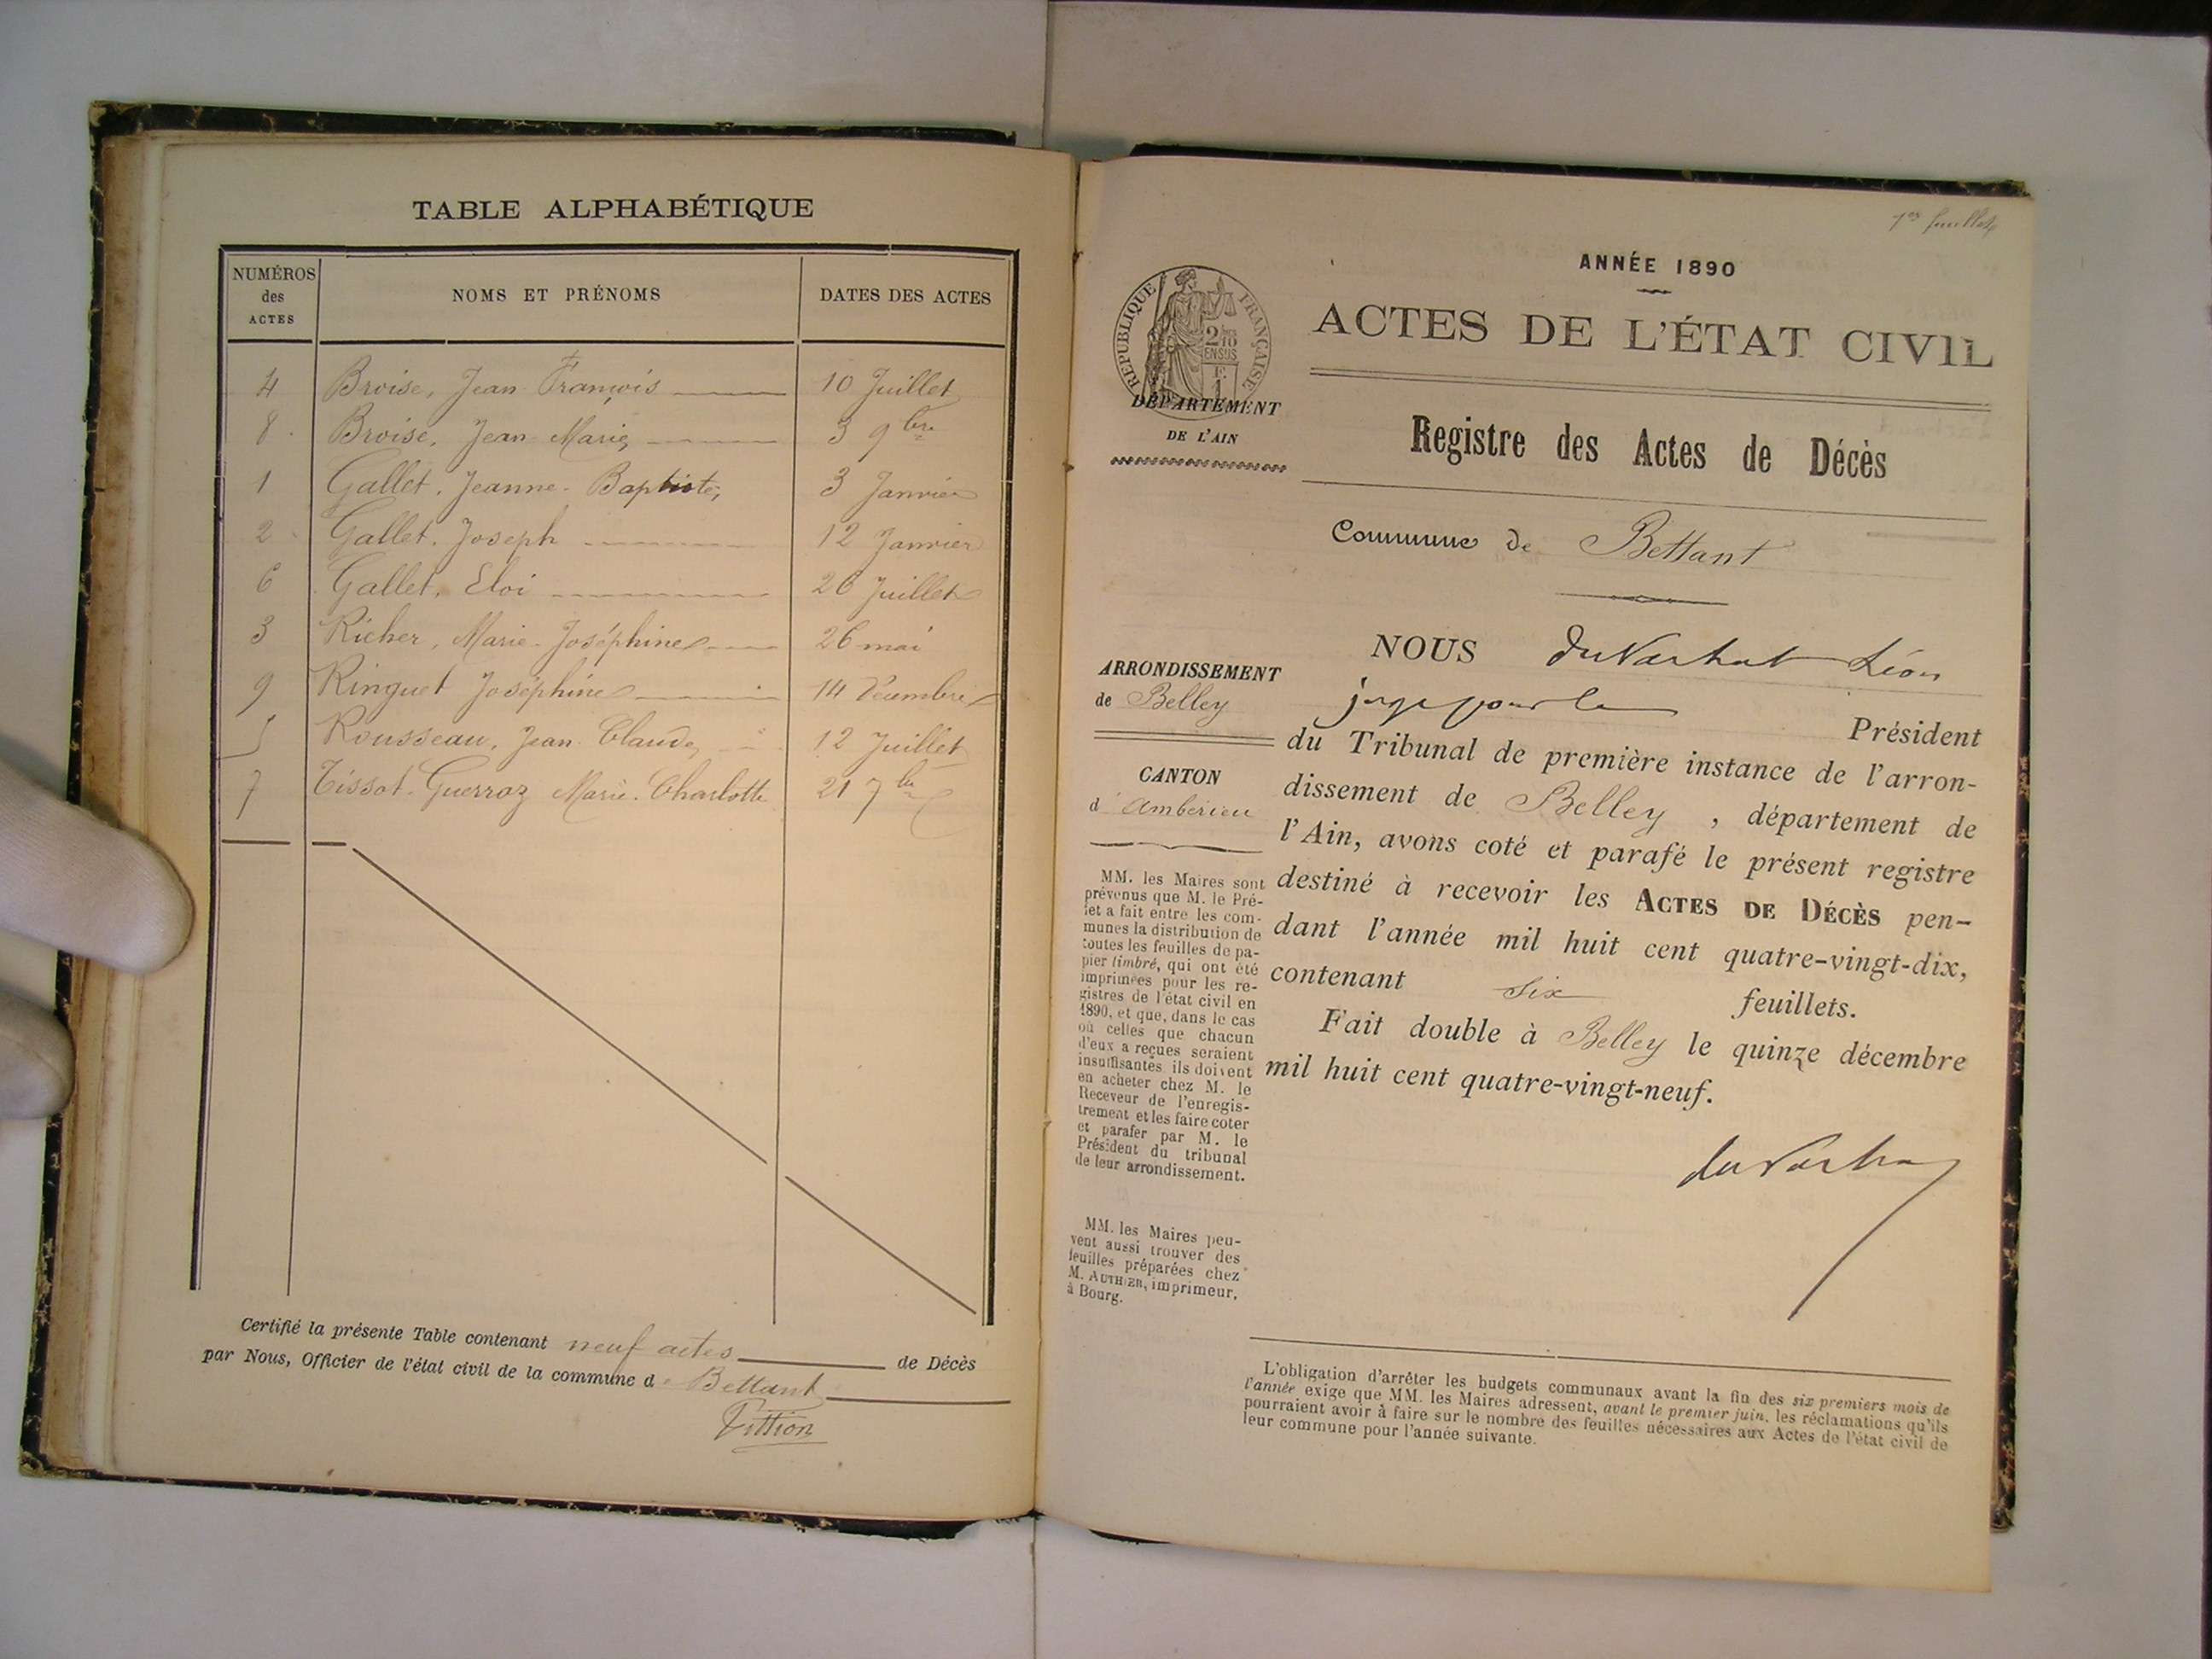 TABLE ALPHABÉTIQUE
NUMÉROS des ACTES
NOMS ET PRÉNOMS
DATES DES ACTES
4 Broise, Jean François 10 Juillet
8 Broise, Jean Marie, 3 9bre
1 Gallet, Jeanne-Baptiste, 3 Janvier
2 Gallet, Joseph 12 Janvier
6 Gallet, Eloi 26 Juillet
3 Richer, Marie-Joséphine 26 mai
9 Ringuet Joséphine 14 Décembre
5 Rousseau, Jean Claude, 12 Juillet
7 Tissot-Guerraz Marie-Charlotte 21 7bre
Certifié la présente Table contenant neuf actes de Décès
par Nous, Officier de l'état civil de la commune de Bettant
Tittion
1er feuillet
ANNÉE 1890
RÉPUBLIQUE FRANÇAISE
2/10 EN SUS
ACTES DE L'ÉTAT CIVIL
DÉPARTEMENT
DE L'AIN
Registre des Actes de Décès
Commune de Bettant
NOUS Léon
ARRONDISSEMENT
de Belley
juge pour le Président
du Tribunal de première instance de l'arron-
dissement de Belley, département de
l'Ain, avons coté et parafé le présent registre
destiné à recevoir les ACTES DE DÉCÈS pen-
dant l'année mil huit cent quatre-vingt-dix,
contenant six feuillets.
Fait double à Belley le quinze décembre
mil huit cent quatre-vingt-neuf.
CANTON
d'Ambérieu
MM. les Maires sont
prévenus que M. le Pré-
fet a fait entre les com-
munes la distribution de
toutes les feuilles de pa-
pier timbré, qui ont été
imprimées pour les re-
gistres de l'état civil en
1890, et que, dans le cas
où celles que chacun
d'eux a reçues seraient
insuffisantes ils doivent
en acheter chez M. le
Receveur de l'enregis-
trement et les faire coter
et parafer par M. le
Président du tribunal
de leur arrondissement.
MM. les Maires peu-
vent aussi trouver des
feuilles préparées chez
M. AUTHIER, imprimeur,
à Bourg.
L'obligation d'arrêter les budgets communaux avant la fin des six premiers mois de
l'année exige que MM. les Maires adressent, avant le premier juin, les réclamations qu'ils
pourraient avoir à faire sur le nombre des feuilles nécessaires aux Actes de l'état civil de
leur commune pour l'année suivante.